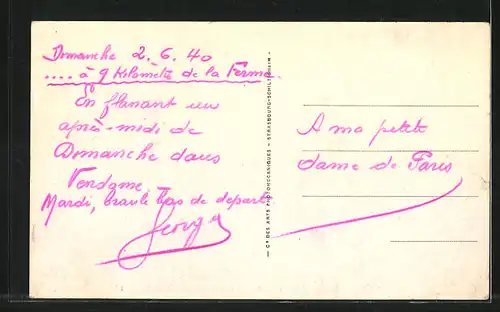 Dimanche 2.6.40
.... à 9 Kilomètre de la Ferme.
En flânant un
après-midi de
Dimanche dans
Vendome. —
Mardi, branle bas de départ.
Georges
— Cie DES ARTS PHOTOMECANIQUES - STRASBOURG-SCHILTIGHEIM —
A ma petite
dame de Paris